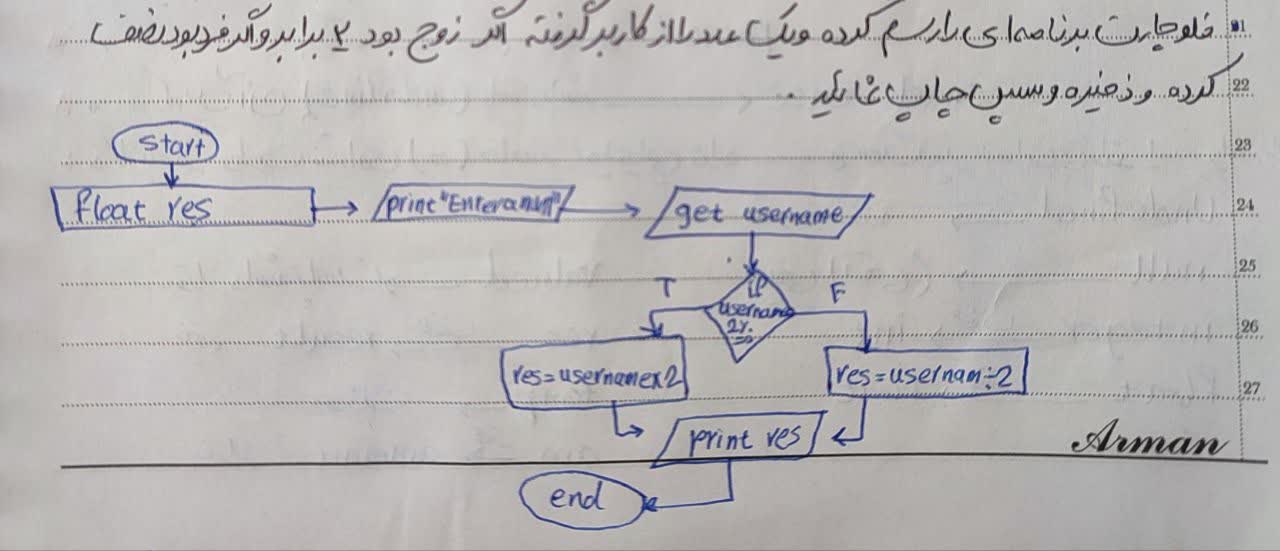 21 فلوچارت برنامه ای را رسم کرده و یک عدد را از کاربر گرفته اگر زوج بود ۲ برابر و اگر فرد بود نصف
22 کرده و ذخیره و سپس چاپ نماید.
23
start
float res
print "Enter
get username
24
25
T
if
username
2%
F
26
res=username×2
res=usernam÷2
27
print res
Arman
end